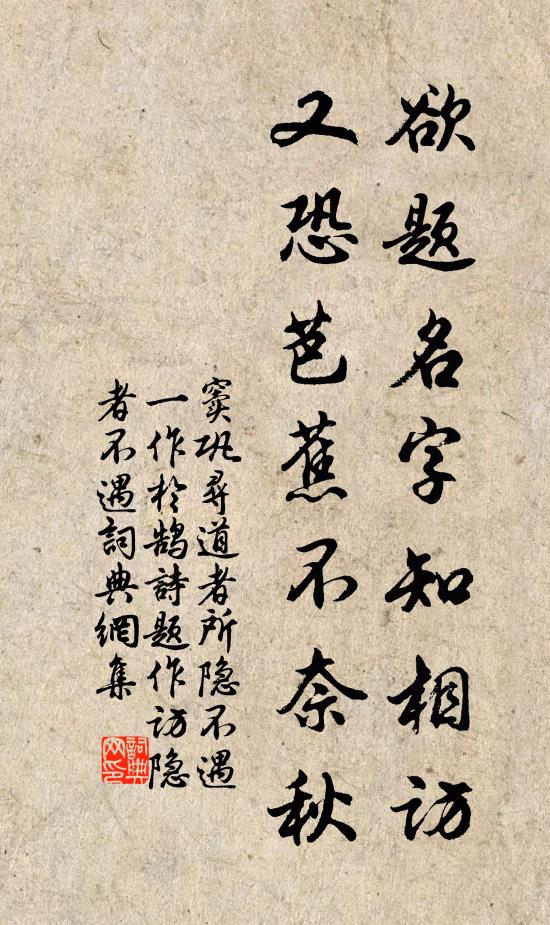 欲题名字知相访
又恐芭蕉不奈秋
窦巩尋道者所隐不遇
一作於鹄詩题作访隐
者不遇詞典網集
詞典
网印